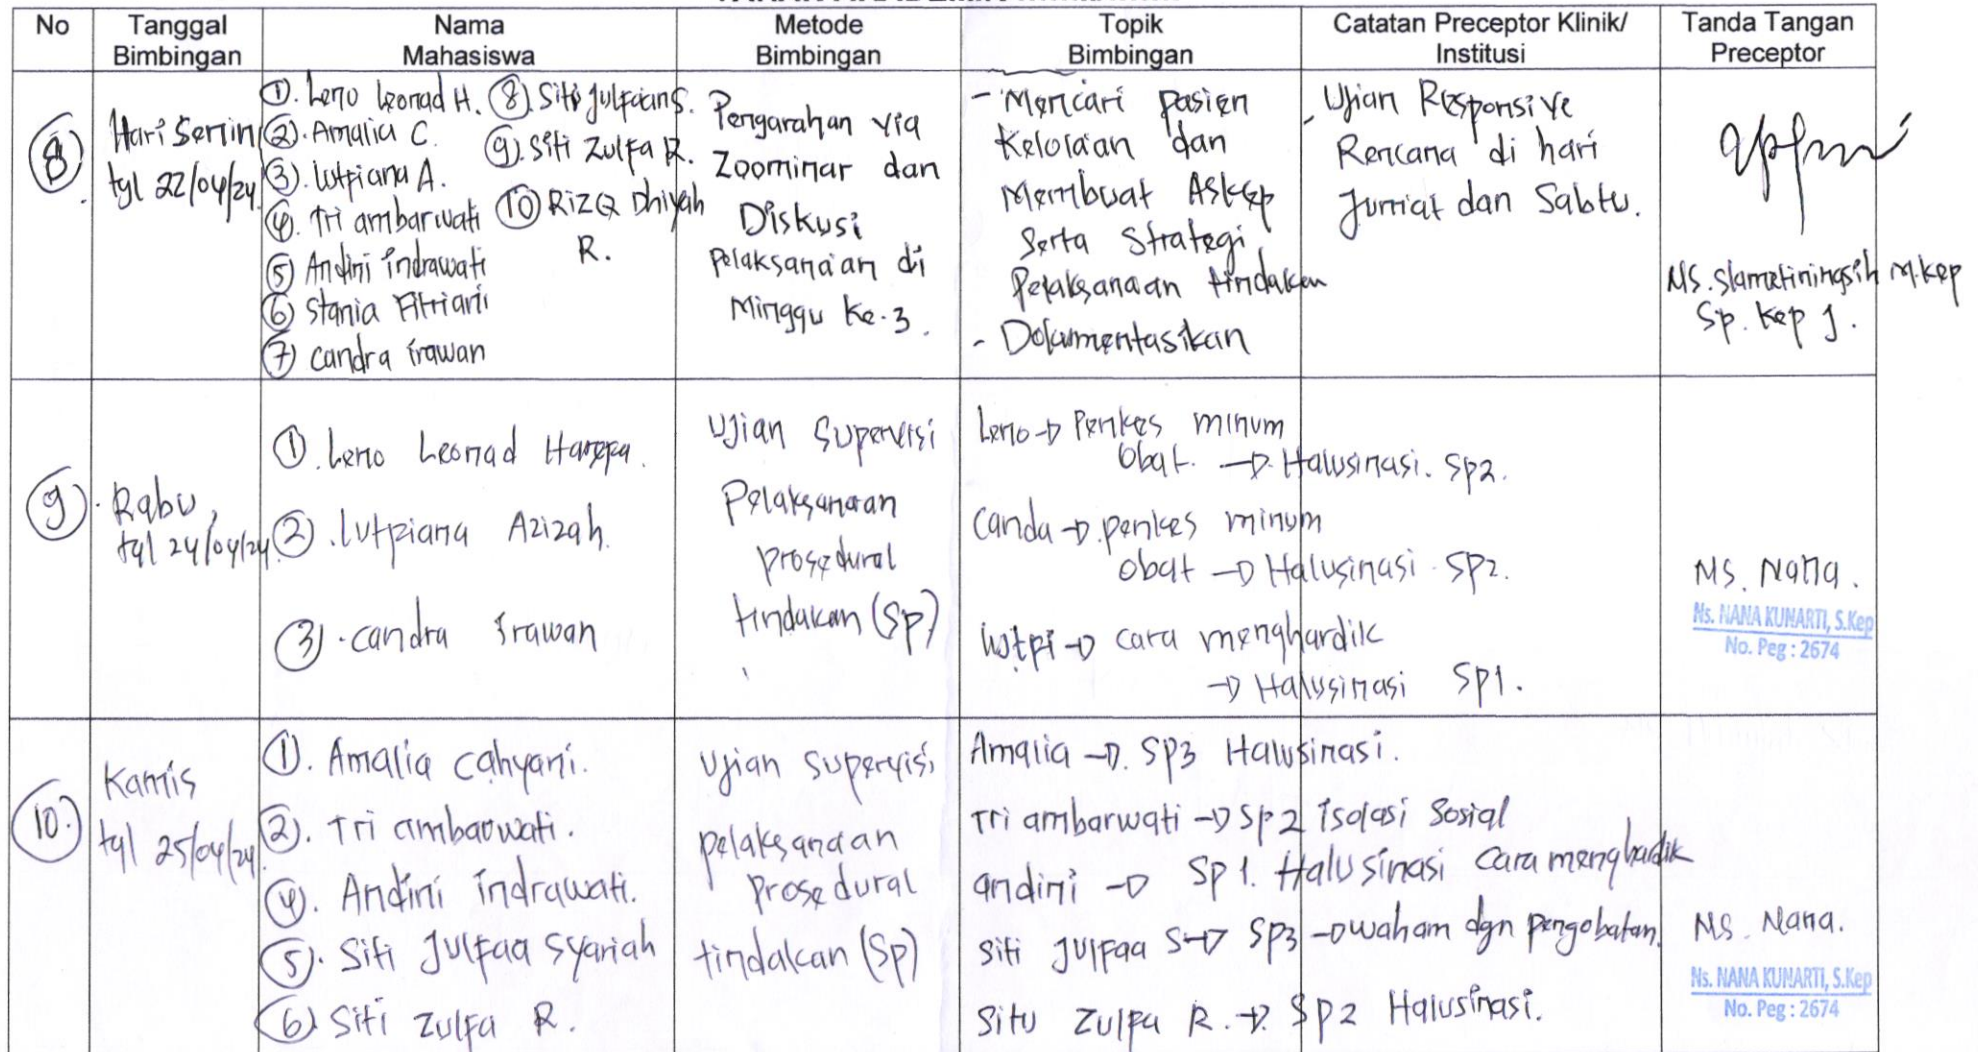 No
Tanggal
Bimbingan
Nama
Mahasiswa
Metode
Bimbingan
Topik
Bimbingan
Catatan Preceptor Klinik/
Institusi
Tanda Tangan
Preceptor
8.
Hari Senin
tgl 22/04/24
1. Leno Leonad H.
2. Amalia C.
3. Lutpiana A.
4. Tri ambarwati
5 Andini indrawati
6 Stania Fitriani
7 candra irawan
8. Siti Julfaan S.
9. Siti Zulfa R.
10 RizQ Dhiyah
R.
Pengarahan via
Zoominar dan
Diskusi
pelaksanaan di
Minggu ke.3.
- Mencari pasien
Kelolaan dan
Membuat Askep
Serta Strategi
Pelaksanaan tindakan
- Dokumentasikan
- Ujian Responsive
Rencana di hari
Jumat dan Sabtu.
NS. Slametiningsih M.kep
Sp. Kep J.
9.
Rabu,
tgl 24/04/24
1. Leno Leonad Harefa.
2. Lutpiana Azizah.
3. candra Irawan
Ujian Supervisi
Pelaksanaan
prosedural
tindakan (Sp)
Leno → Penkes minum
Obat. → Halusinasi. SP2.
Canda → penkes minum
obat → Halusinasi. SP2.
lutpi → cara menghardik
→ Halusinasi SP1.
NS. Nana.
Ns. NANA KUNARTI, S.Kep
No. Peg : 2674
10.
Kamis
tgl 25/04/24.
1. Amalia cahyani.
2. Tri ambarwati.
4. Andini indrawati.
5. Siti Julfaa syariah
6. Siti Zulfa R.
Ujian supervisi
pelaksanaan
prosedural
tindakan (SP)
Amalia → SP3 Halusinasi.
Tri ambarwati → SP2 isolasi Sosial
andini → SP1. Halusinasi cara menghadik
Siti Julfaa S → SP3 → waham dgn pengobatan.
Situ Zulfa R. → SP2 Halusinasi.
NS. Nana.
Ns. NANA KUNARTI, S.Kep
No. Peg : 2674